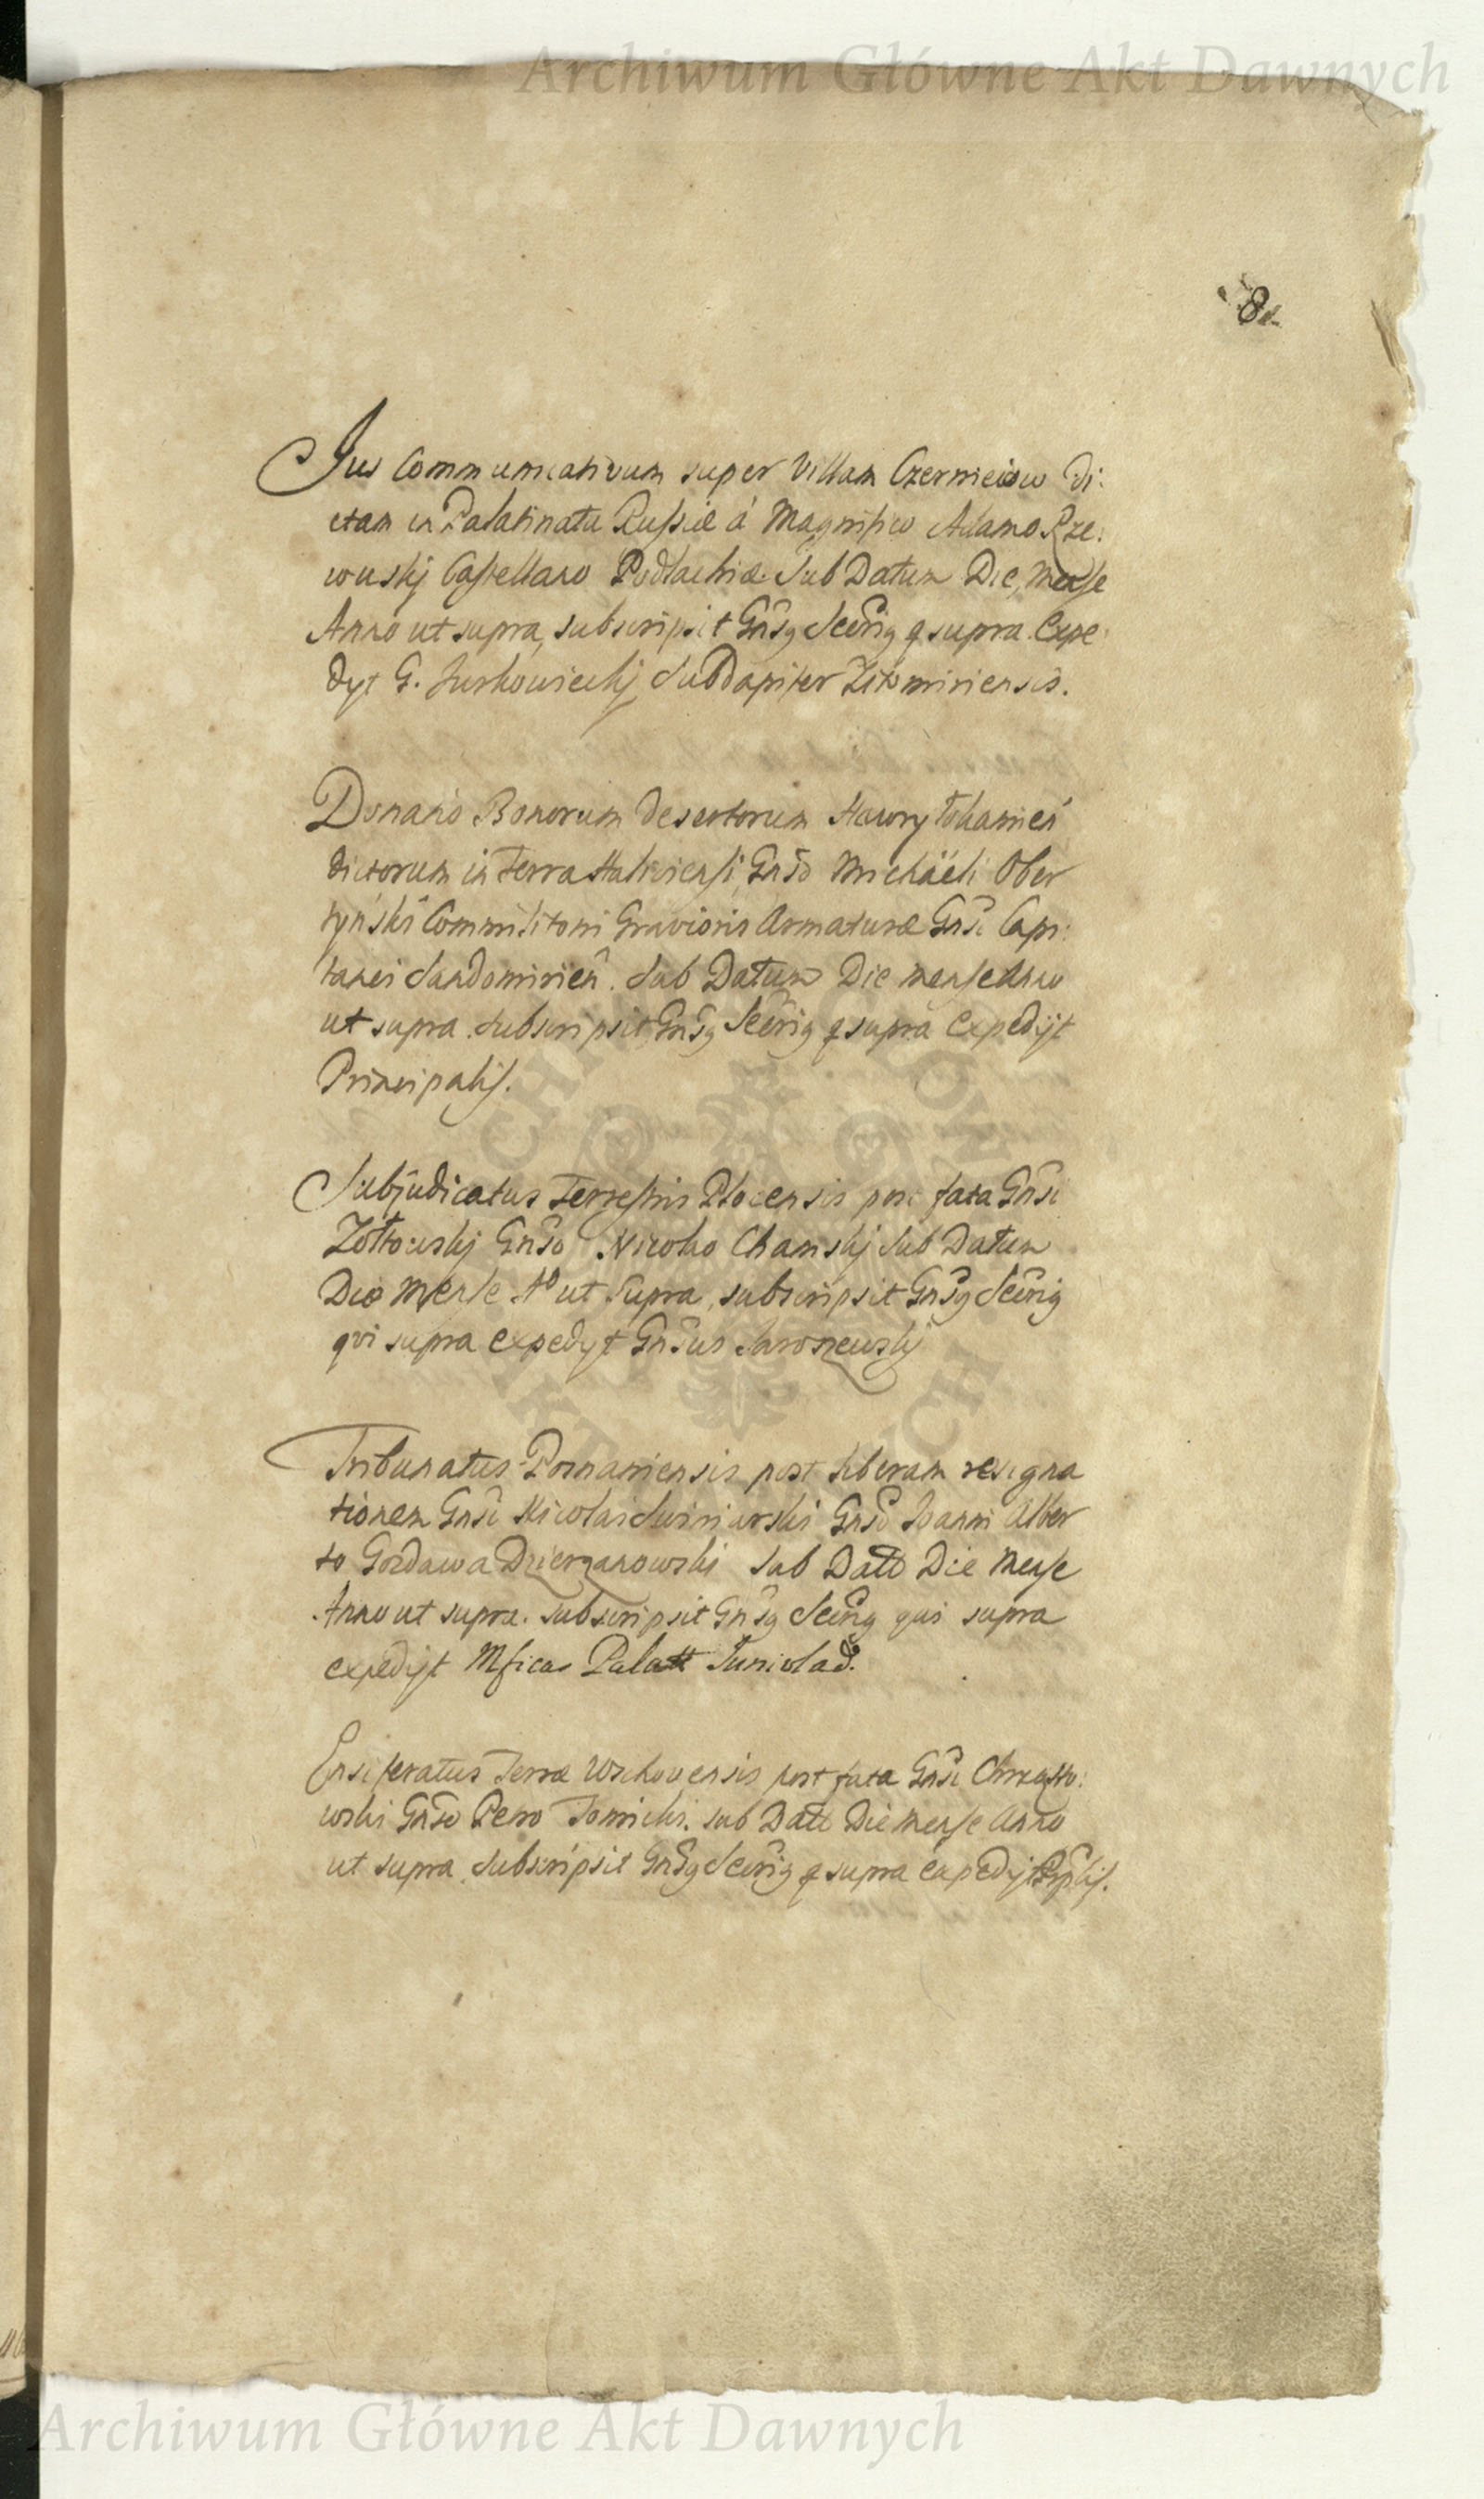 Archiwum Główne Akt Dawnych
8
Jus Communicativum super Villam Czerniejow di:
ctam in Palatinatu Russiæ á Magnifico Adamo Rze:
wuskj Castellano Podlachiæ. Sub Datum Die, Mense
Anno ut supra, subscripsit Gnsg Secrig q supra. Expe
dyt G. Jurkowieckj SubDapifer Zitomiriensis.
Donatio Bonorum desertorum Hawryłokamień
dictorum in Terra Haliciensi, Gnso Michäeli Ober
tyński Commilitoni Gravioris Armaturæ Gnsi Capi:
tanei Sandomirien. Sub Datum Die mense Anno
ut supra. subscripsit Gnsg Secrig q supra Expedijt
Principalis.
Subjudicatus Terrestris Plocensis post fata Gnsi
Zołtowskj Gnso Nicolao Chamskj Sub Datum
Die Mense Ao ut Supra, subscripsit Gnsg Secrig
qvi supra expedyt Gnsus Jaroszewskj
Tribunatus Posnaniensis post liberam resigna
tionem Gnsi Nicolai Swiniarski Gnso Joanni Alber
to Gozdawa Dzierzanowski Sub Datt Die Mense
Anno ut supra. subscripsit Gnsg Secrig qui supra
expedijt Mficus Palatt Juniolad.
Ensiferatus Terræ Wschovensis post fata Gnsi Chrząsto:
wski Gnso Petro Tomicki. sub Datt Die mense Anno
ut supra. Subscripsit Gnsg Secrig q supra expedijt Prplis.
Archiwum Główne Akt Dawnych